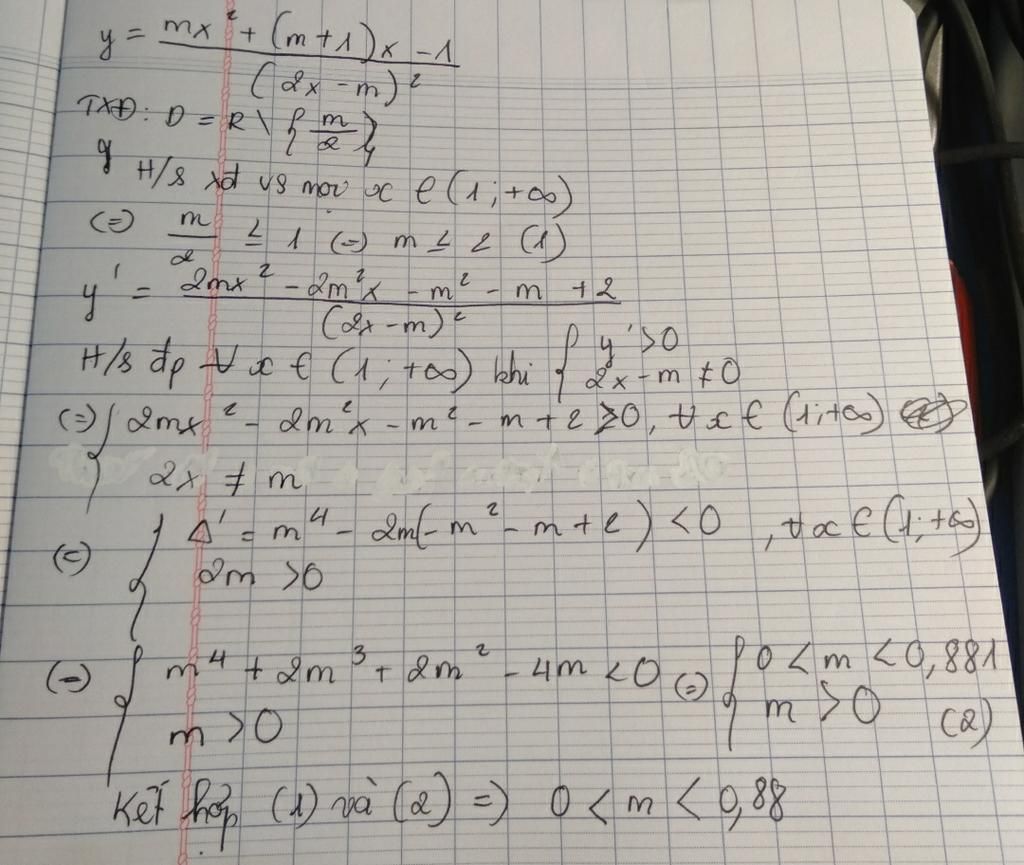 y = mx² + (m+1)x - 1 / (2x - m)²
TXĐ: D = R \ { m/2 }
y
H/s xđ vs mọi x ∈ (1; +∞)
(=) m/2 ≤ 1 (=) m ≤ 2 (1)
y' = 2mx² - 2m²x - m² - m + 2 / (2x - m)²
H/s đp ∀ x ∈ (1; +∞) khi { y' > 0
2x - m ≠ 0
(=) { 2mx² - 2m²x - m² - m + 2 ≥ 0, ∀ x ∈ (1; +∞)
2x ≠ m
(=) { Δ' = m⁴ - 2m(-m² - m + 2) < 0, ∀ x ∈ (1; +∞)
2m > 0
(=) { m⁴ + 2m³ + 2m² - 4m < 0 (=) { 0 < m < 0,881
m > 0 m > 0 (2)
Kết hợp (1) và (2) => 0 < m < 0,88